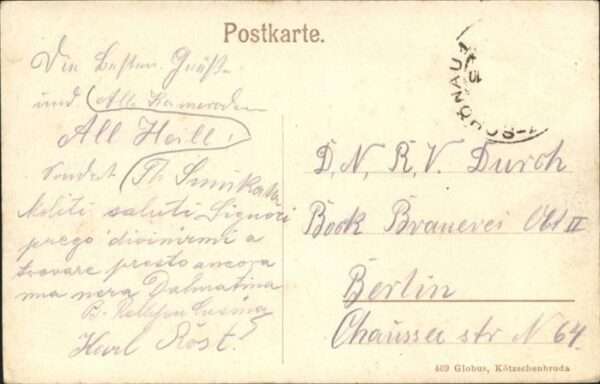 Postkarte.
Die Besten Grüße
und Alle Kameraden
All Heil!
Sendet Th.
Moliti saluti Signori
prego divinirmi a
trovare presto ancora
una nera Dalmatina
B.
Karl Röst!
D, N, R, V. Durch
Bock Brauerei Abt II
Berlin
Chaussee str N 64.
469 Globus, Kötzschenbroda